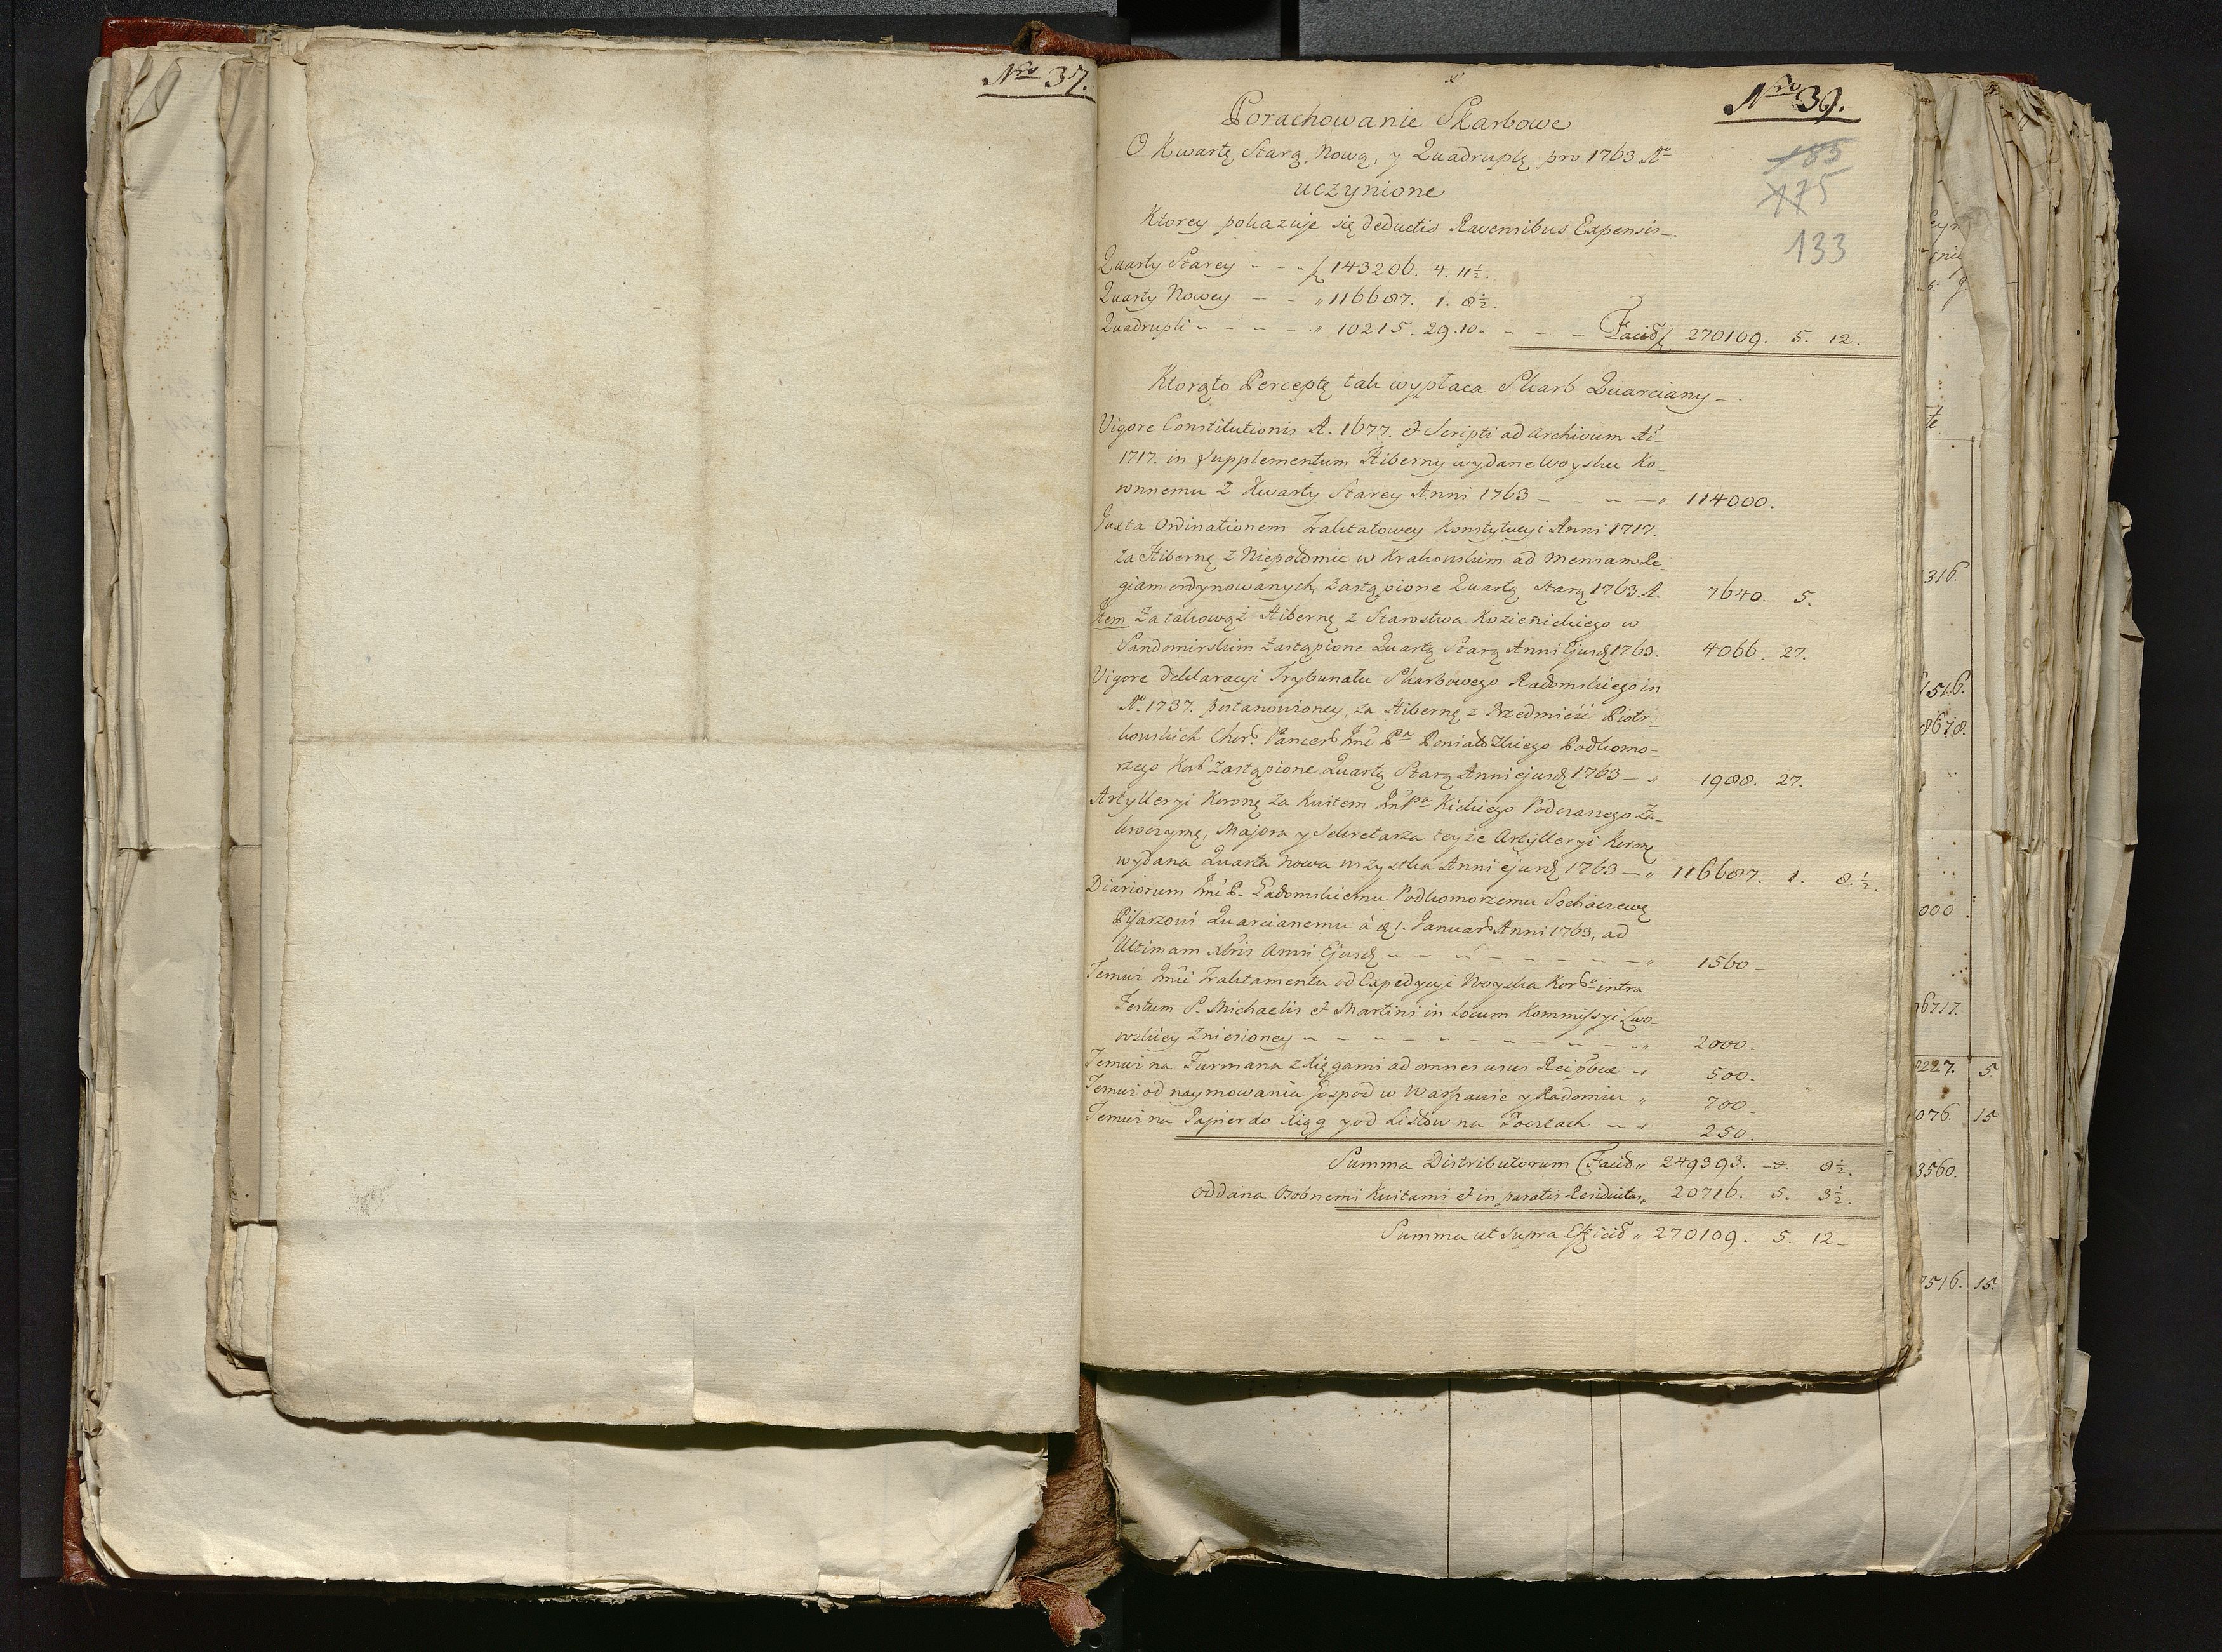 Nro 37.
Nro 39.
185
175
133
Porachowanie Skarbowe
O Kwartę Starą, Nową, y Quadruplę pro 1763 Ao
uczynione
Ktorey pokazuje się deductis Ravensibus Expensis.
Quarty Starey - - - 143206. 4. 11½.
Quarty Nowey - - " 116687. 1. 8½.
Quadrupli - - - - " 10215. 29. 10. - - - Facid 270109. 5. 12.
Ktorąto Perceptę tak wypłaca Skarb Quarciany.
Vigore Constitutionis A. 1677. et Scripti ad Archivum Ai
1717. in Supplementum Hiberny wydane Woysku Ko-
ronnemu z Kwarty Starey Anni 1763 - - - - " 114000.
Juxta Ordinationem Traktatowey Konstytucyi Anni 1717.
za Hibernę z Niepołomic w Krakowskim ad Mensam Re-
giam ordynowanych, zastąpione Quartą Starą 1763. A. 7640. 5.
Item Za takowąż Hibernę z Starostwa Kozienickiego w
Sandomirskim zastąpione Quartą Starą Anni Ejusd 1763. 4066. 27.
Vigore Deklaracyi Trybunału Skarbowego Radomskiego in
Ao. 1737. postanowioney, za Hibernę z Przedmieść Piotr-
kowskich Chor. Pancer Jmć Pa Poniatowskiego Podkomo-
rzego Kor zastąpione Quartą Starą Anni ejusd 1763 - " 1988. 27.
Artylleryi Koronę Za Kwitem JmPa Kickiego Podczaszego Za-
kroczymę, Majora y Sekretarza teyże Artylleryi Koronę
wydana Quarta Nowa wszystka Anni ejusd 1763 - " 116687. 1. 8.½.
Diariorum Jmć P. Radomskiemu Podkomorzemu Sochaczewę
Pisarzowi Quarcianemu à 1. Januar Anni 1763, ad
Ultimam Xbris Anni Ejusd - - - - - - - " 1560 -
Temuż Jmci Traktamentu od Expedycyi Woyska Kor intra
Festum S. Michaelis et Martini in Locum Kommissyi Lwo-
wskiey Zniesioney - - - - - - - - - " 2000.
Temuż na Furmana z Xięgami ad omnes usus Reipbcae " 500.
Temuż od naymowania Gospod w Warszawie y Radomiu " 700.
Temuż na Papier do Xiąg y od Listów na Pocztach - " 250.
Summa Distributorum Facid " 249393. -. 8½.
oddana Osobnemi Kwitami et in paratis Residuitas " 20716. 5. 3½.
Summa ut Supra Efficid " 270109. 5. 12 -
316.
1516.
8678.
000
6717.
227. 5.
076. 15
3560.
7516. 15.